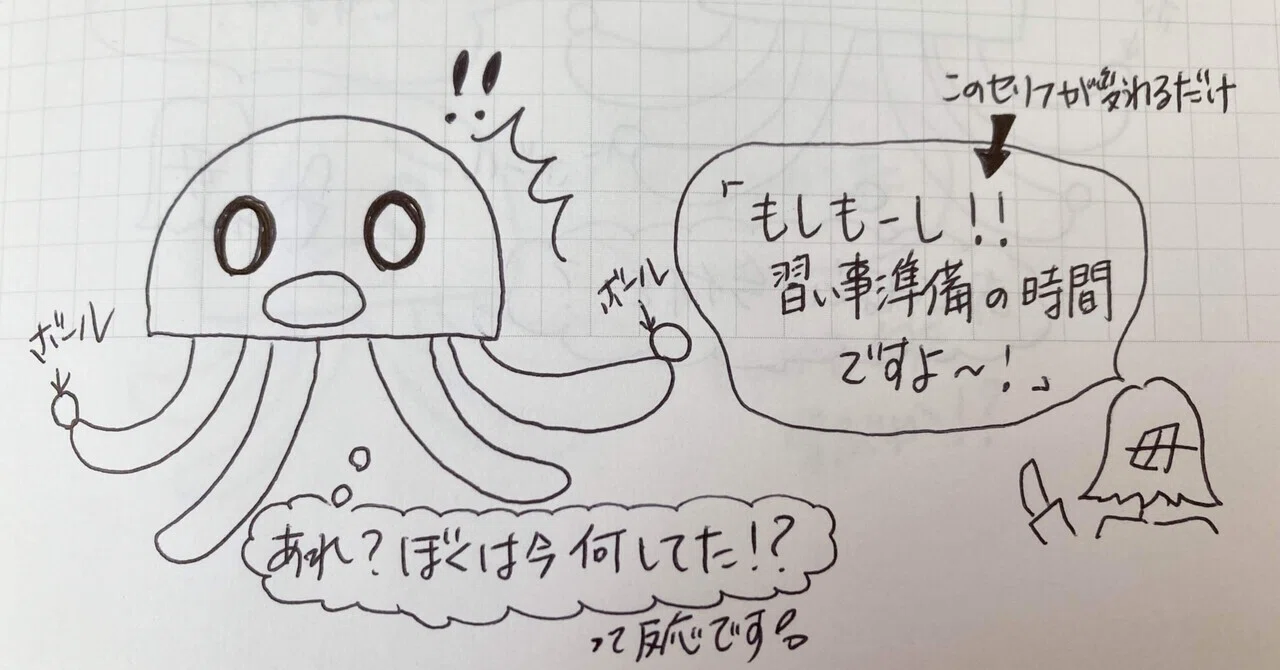 !!
このセリフが変わるだけ
「もしもーし!!
習い事準備の時間
ですよ~!」
ボール
ボール
母
あれ?ぼくは今何してた!?
って反応です。